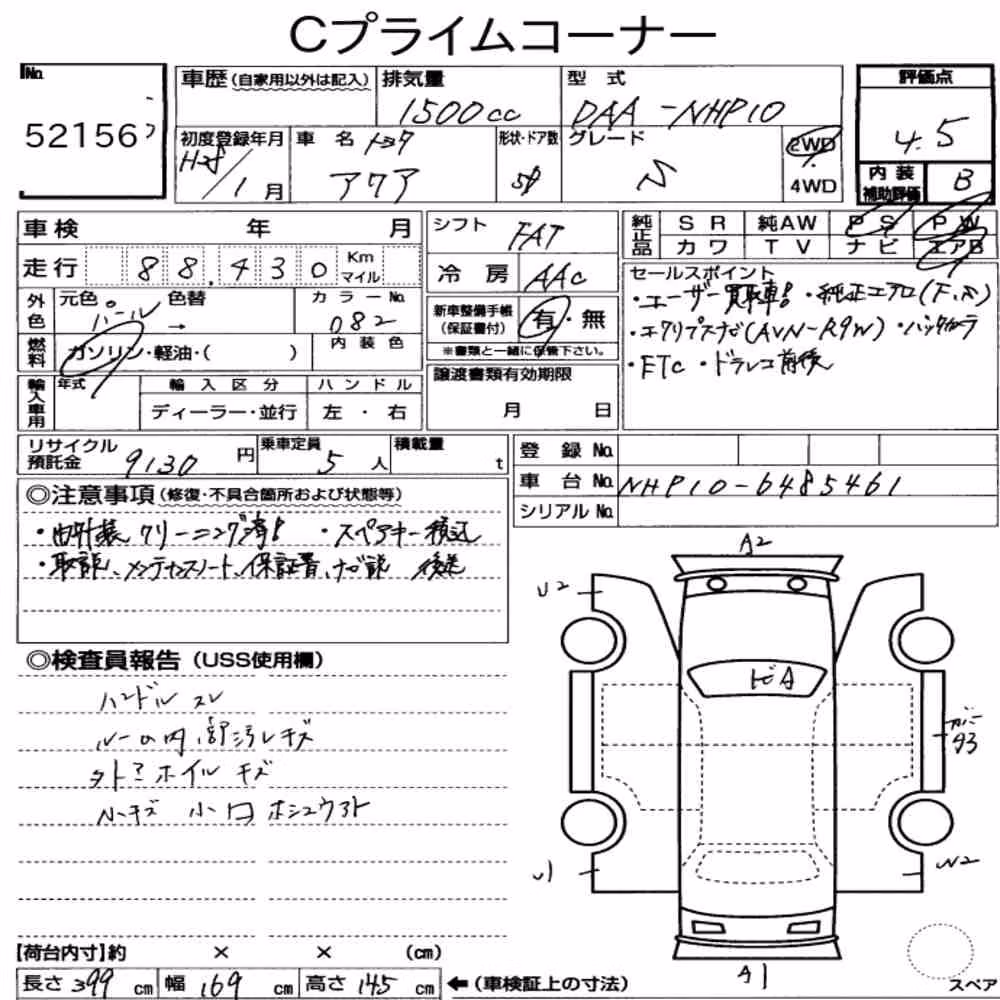 Cプライムコーナー
No.
52156
車歴 (自家用以外は記入)
排気量
1500cc
型 式
DAA-NHP10
評価点
4.5
初度登録年月
H28/1月
車 名 トヨタ
アクア
形状・ドア数
5D
グレード
S
2WD
4WD
内装
補助評価
B
車検 年 月
走行 88,430 Km
マイル
外色
元色 パール 色替
→
カラーNo.
082
燃料
ガソリン・軽油・( )
内装色
輸入車用
年式
輸入区分
ディーラー・並行
ハンドル
左・右
シフト FAT
冷房 AAC
新車整備手帳
(保証書付)
有・無
※書類と一緒に保管下さい。
譲渡書類有効期限
月 日
純正品
SR 純AW PS PW
カワ TV ナビ エアB
セールスポイント
・ユーザー買取車! ・純正エアロ(F,S)
・エクリプスナビ(AVN-R9W) ・バックカメラ
・ETC ・ドラレコ前後
リサイクル
預託金
9130円
乗車定員
5人
積載量
t
登録No.
車台No. NHP10-6485461
シリアルNo.
◎注意事項(修復・不具合箇所および状態等)
・内外装クリーニング済! ・スペアキー積込
・取説、メンテナンスノート、保証書、ナビ説 後送
◎検査員報告(USS使用欄)
ハンドル スレ
ルームの内部汚レキズ
タイヤホイル キズ
小キズ 小凹
A2
U2
トビA
カバー
A3
U1
W2
A1
スペア
【荷台内寸】約 × × (cm)
長さ 399 cm 幅 169 cm 高さ 145 cm ←(車検証上の寸法)